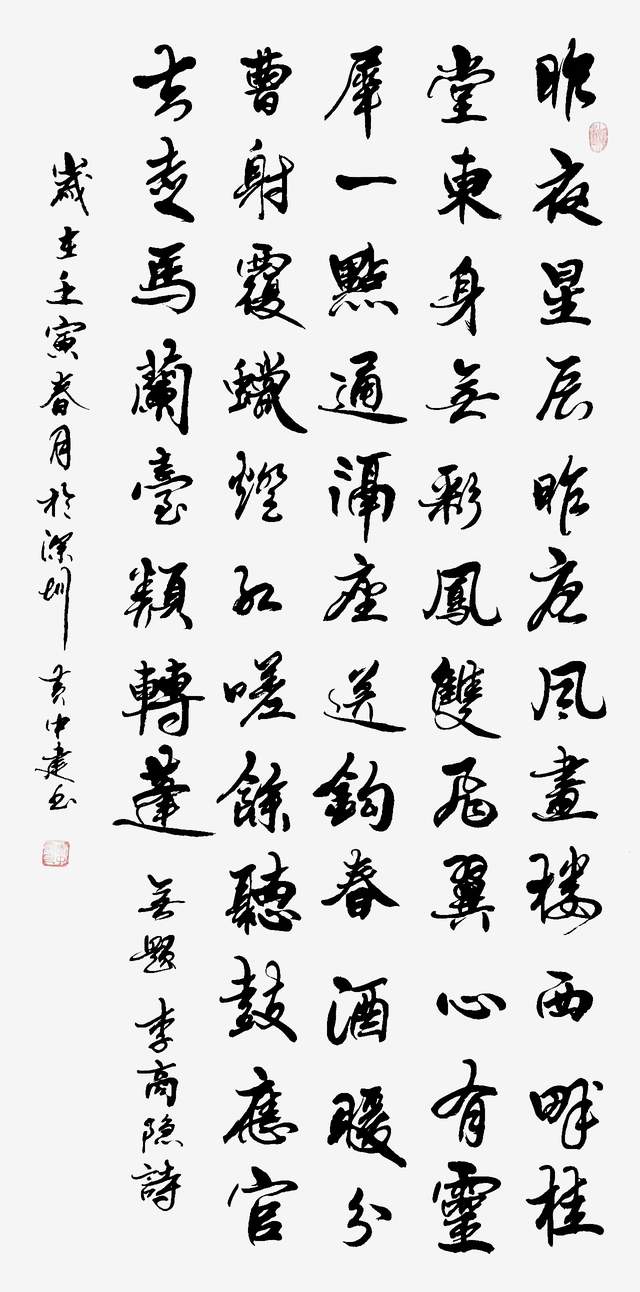 昨夜星辰昨夜風畫樓西畔桂
堂東身無彩鳳雙飛翼心有靈
犀一點通隔座送鈎春酒暖分
曹射覆蠟燈紅嗟餘聽鼓應官
去走馬蘭臺類轉蓬 無題 李商隱詩
歲在壬寅春月於深圳 黃中建書